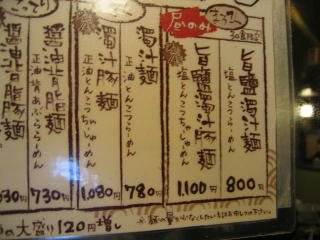 昼のみ
30食限定
旨鹽濁汁麺
塩とんこつらーめん
800円
旨鹽濁汁豚麺
塩とんこつちゃーしゅーめん
1,100円
濁汁麺
正油とんこつらーめん
780円
濁汁豚麺
正油とんこつちゃーしゅーめん
1,080円
醤油背脂麺
正油背あぶららーめん
730円
醤油背脂豚麺
030円
の大盛り120円増し